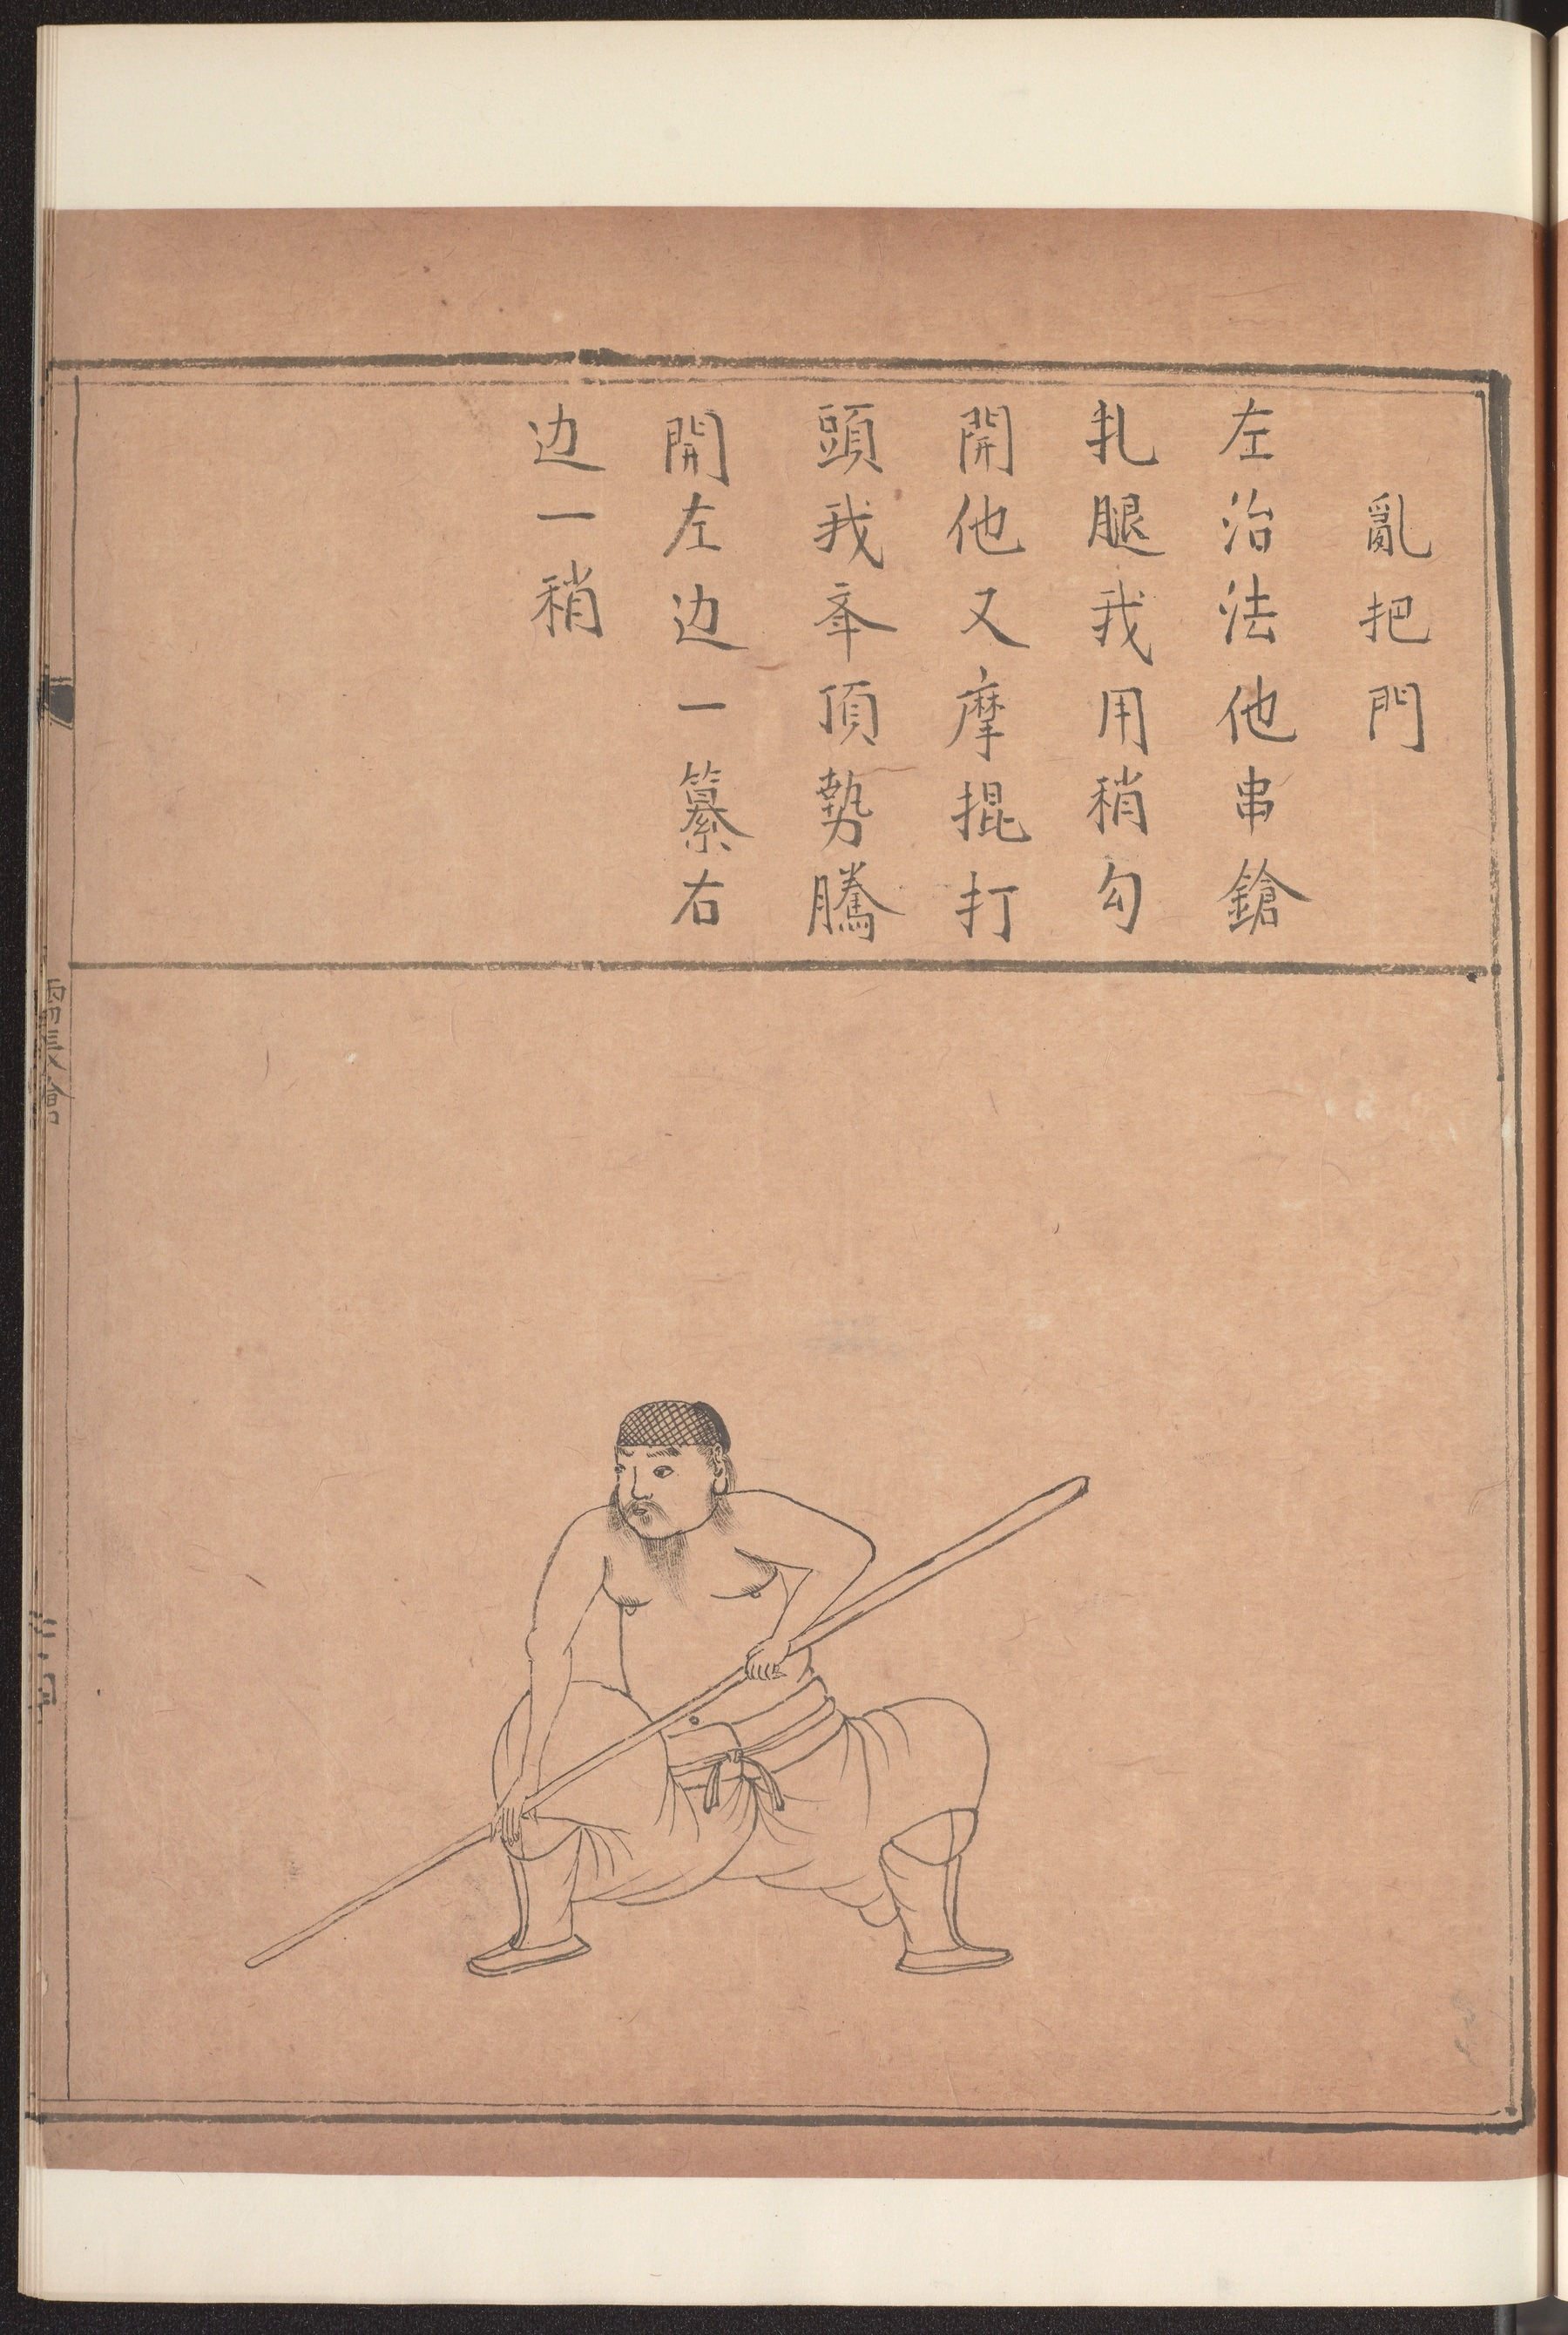 亂把門
左治法他串鎗
扎腿我用稍勾
開他又摩掍打
頭我奉頂勢騰
開左边一纂右
边一稍